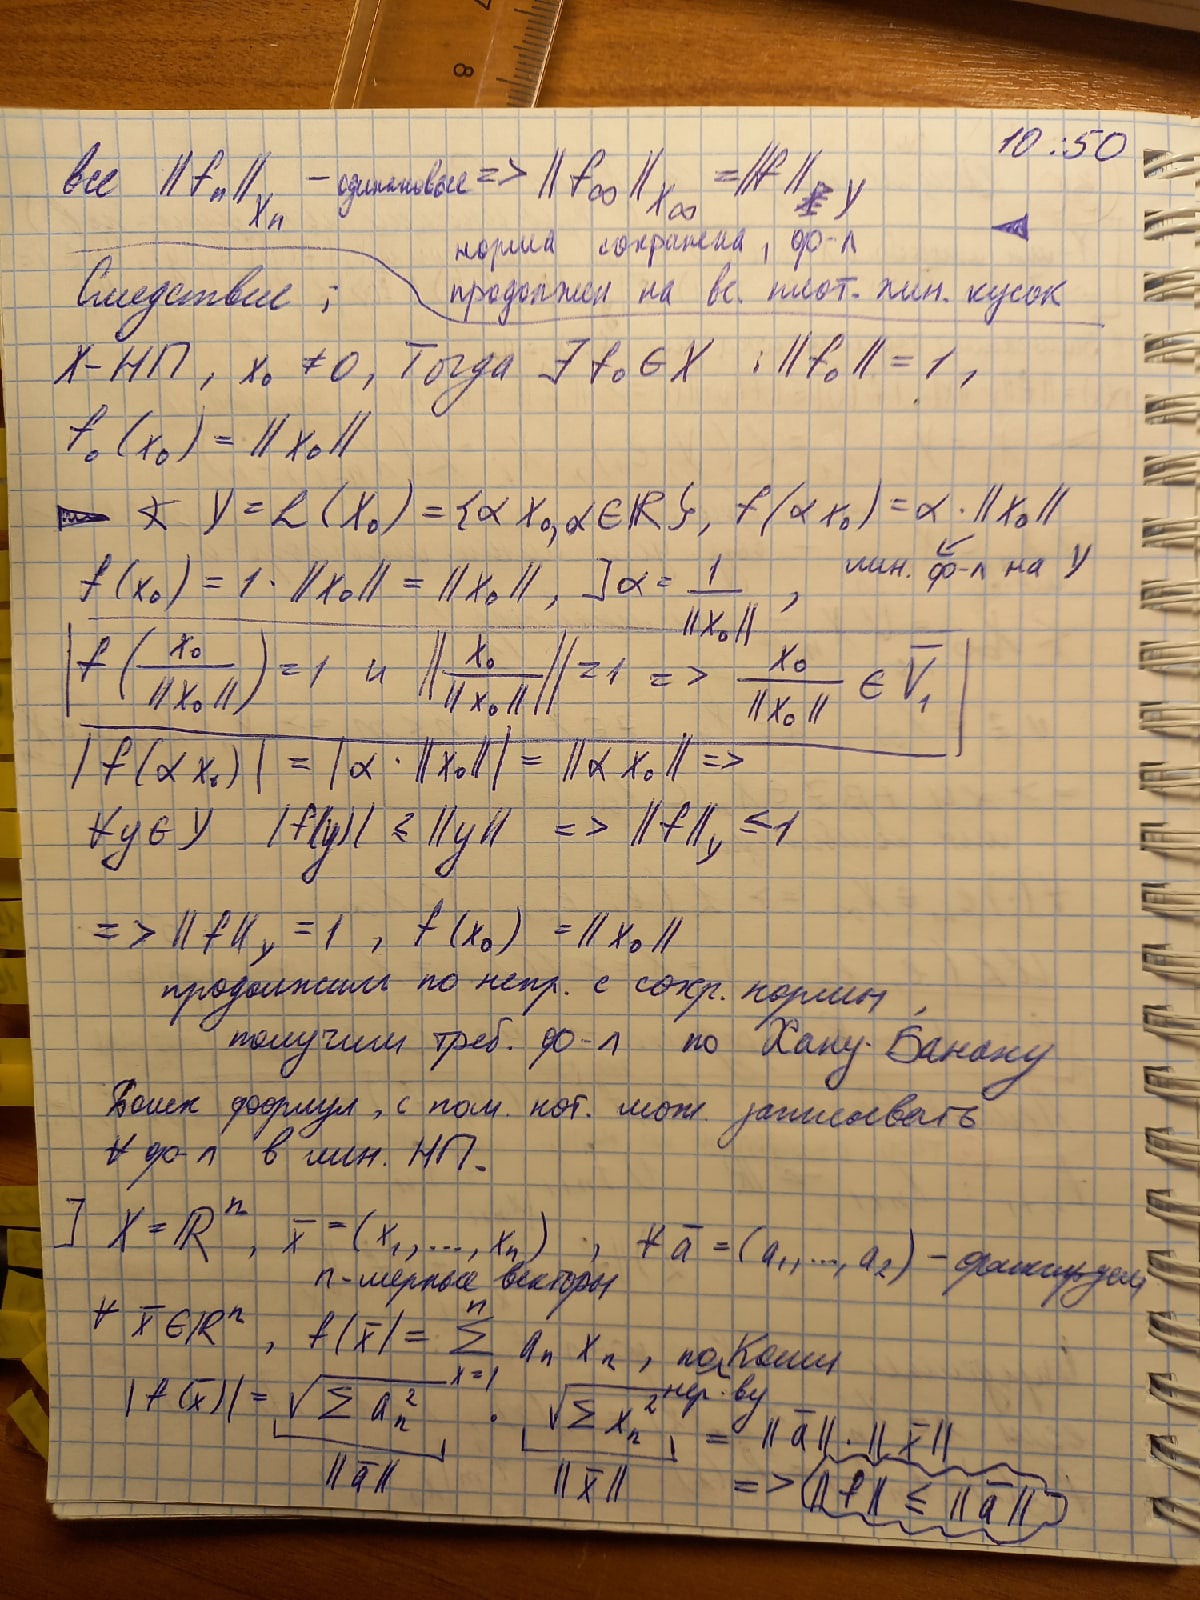 10:50
все ||fₙ||_Xₙ – одинаковые => ||f∞||_X∞ = ||f||_Y
норма сохранена, ф-л
Следствие: продолжен на вс. плот. лин. кусок
X – НП, x₀ ≠ 0, Тогда ∃ f₀ ∈ X : ||f₀|| = 1,
f₀(x₀) = ||x₀||
Y = L(x₀) = {αx₀, α ∈ ℝ}, f(αx₀) = α · ||x₀||
лин. ф-л на Y
f(x₀) = 1 · ||x₀|| = ||x₀||, ] α = 1/||x₀||,
f(x₀/||x₀||) = 1 и ||x₀/||x₀|| || = 1 => x₀/||x₀|| ∈ V̄₁
|f(αx₀)| = |α · ||x₀|| | = ||αx₀|| =>
∀y ∈ Y |f(y)| ≤ ||y|| => ||f||_Y ≤ 1
=> ||f||_Y = 1, f(x₀) = ||x₀||
продолжим по непр. с сохр. нормы,
получим треб. ф-л по Хану-Банаху
Поиск формул, с пом. кот. мож. записывать
∀ ф-л в лин. НП.
] X = ℝⁿ, x̄ = (x₁, ..., xₙ), ∀ ā = (a₁, ..., a₂) – фиксируем
n-мерные векторы
∀ x̄ ∈ ℝⁿ, f(x̄) = Σ_{x=1}^{n} aₙ xₙ, по Коши
нер-ву
|f(x̄)| = √(Σ aₙ²) · √(Σ xₙ²) = ||ā|| · ||x̄||
||ā|| ||x̄|| => ||f|| ≤ ||ā||